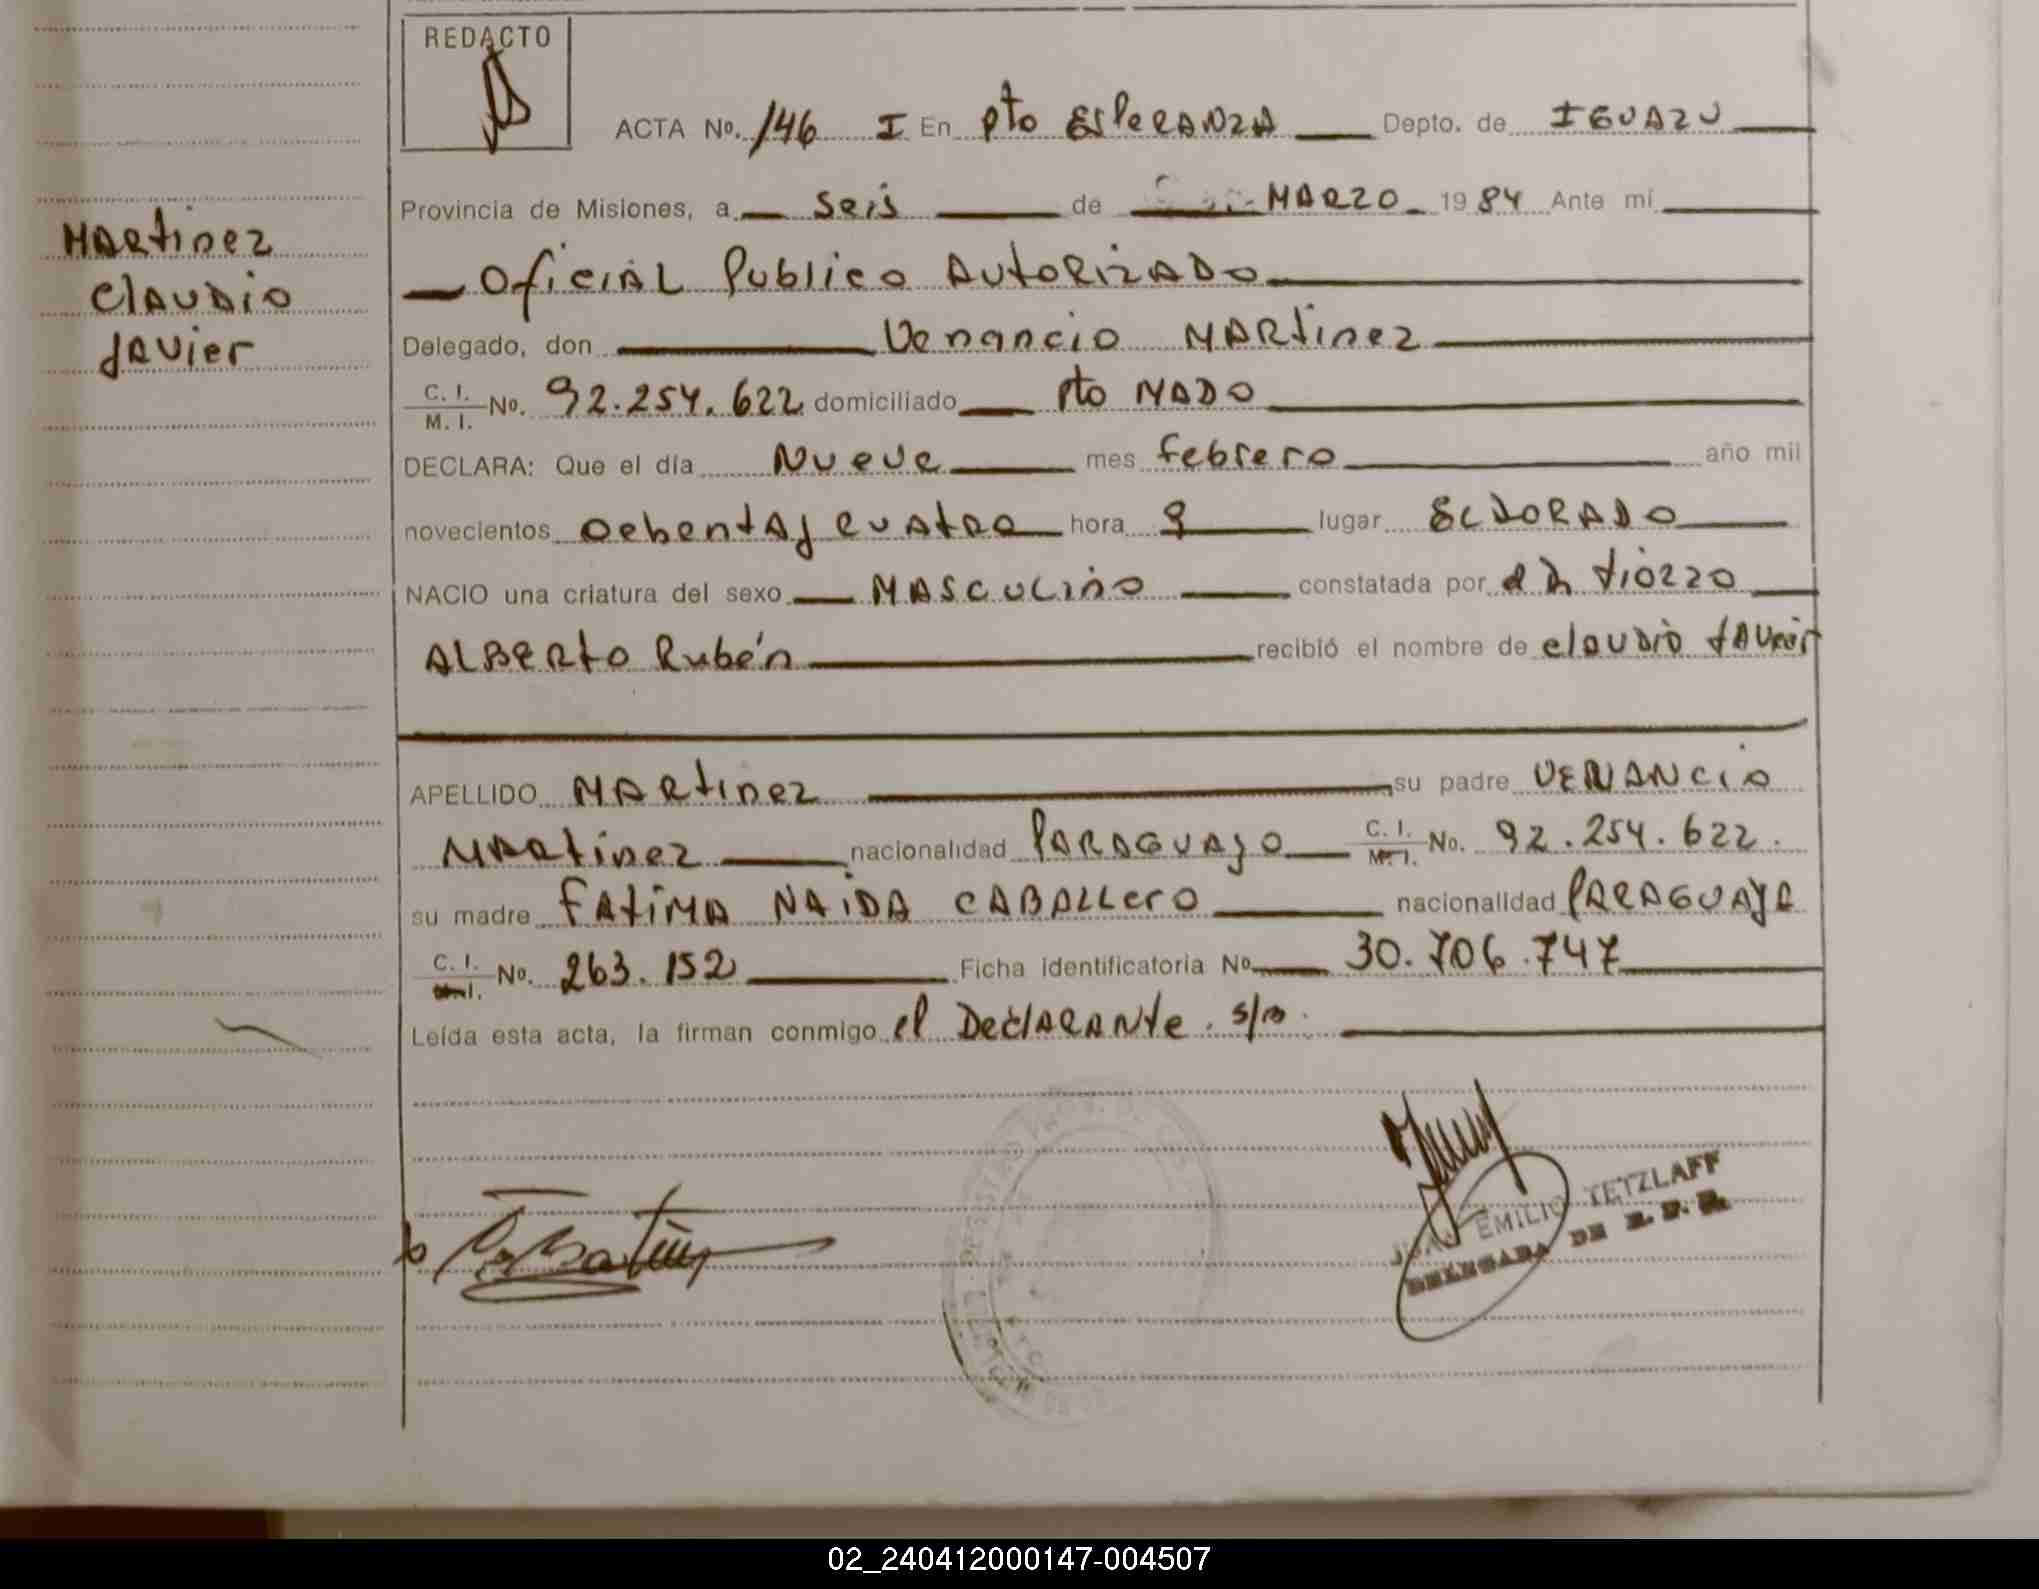 REDACTO
ACTA No. 146 I En Pto Esperanza Depto. de IGUAZU
Provincia de Misiones, a seis de MARZO 1984 Ante mí
Oficial Publico Autorizado
Martinez
Claudio
Javier
Delegado, don Venancio Martinez
C. I. / M. I. No. 92.254.622 domiciliado Pto MADO
DECLARA: Que el día Nueve mes febrero año mil
novecientos ochenta y cuatro hora 9 lugar ELDORADO
NACIO una criatura del sexo MASCULINO constatada por el Dr Tiozzo
ALBERTO Rubén recibió el nombre de Claudio Javier
APELLIDO Martinez su padre VENANCIO
Martinez nacionalidad PARAGUAYO C. I. / M. I. No. 92.254.622.
su madre FATIMA NAIDA CABALLERO nacionalidad PARAGUAYA
C. I. No. 263.152 Ficha identificatoria No 30.706.747
Leída esta acta, la firman conmigo el Declarante. s/m.
JUAN EMILIO TETZLAFF
DELEGADA DE R. P. R.
02_240412000147-004507